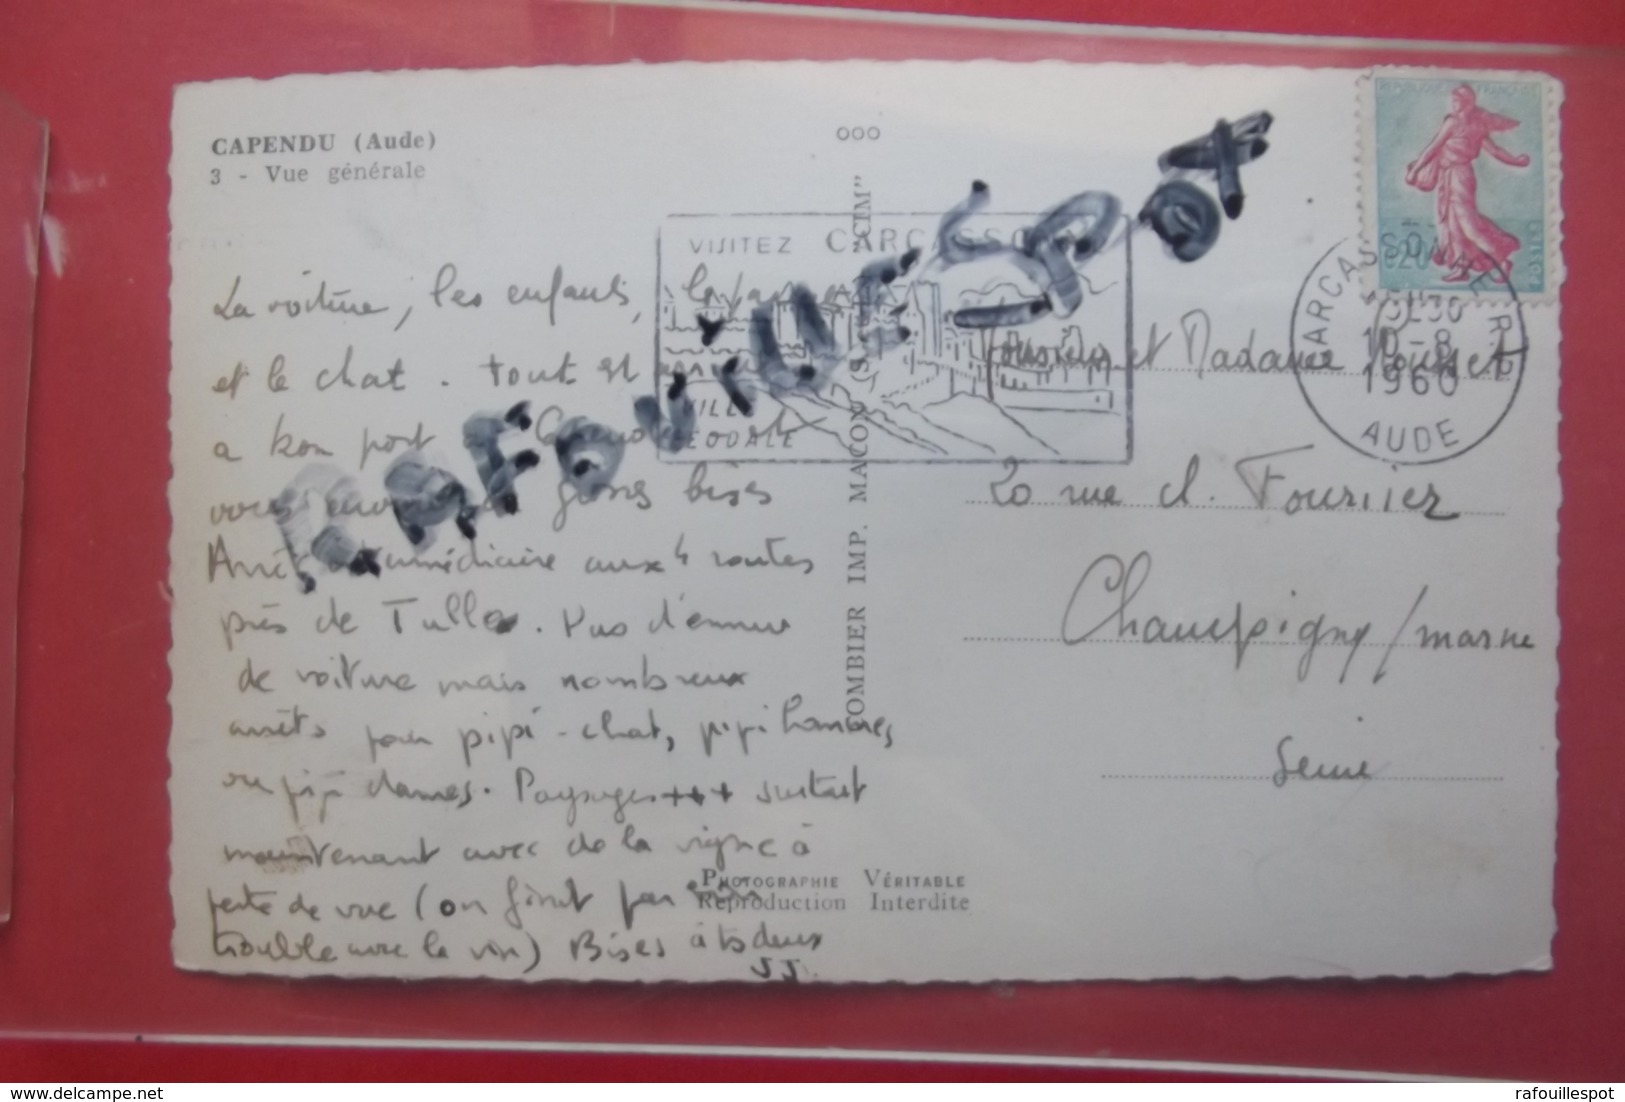 CAPENDU (Aude)
3 - Vue générale
ooo
VISITEZ CARCASSONNE
VILLE
FEODALE
RAFOUILLESPOT
REPUBLIQUE FRANÇAISE
0,20
POSTES
CARCASSONNE R.P.
10-8
1960
AUDE
La voiture, les enfants, la
et le chat. tout est arrivé
a bon port
vous grosses bises
Arrêt intermédiaire aux 4 routes
près de Tulle. Pas d'ennui
de voiture mais nombreux
arrêts pour pipi-chat, pipi hommes
ou pipi dames. Paysages +++ surtout
maintenant avec de la vigne à
perte de vue (on finit par
trouble avec le vin) Bises à ts deux
JJ.
COMBIER IMP. MACON (S.-&-L.) "CIM"
Monsieur et Madame
20 rue ch. Fourier
Champigny/marne
Seine
Photographie Véritable
Reproduction Interdite
delcampe.net
rafouillespot